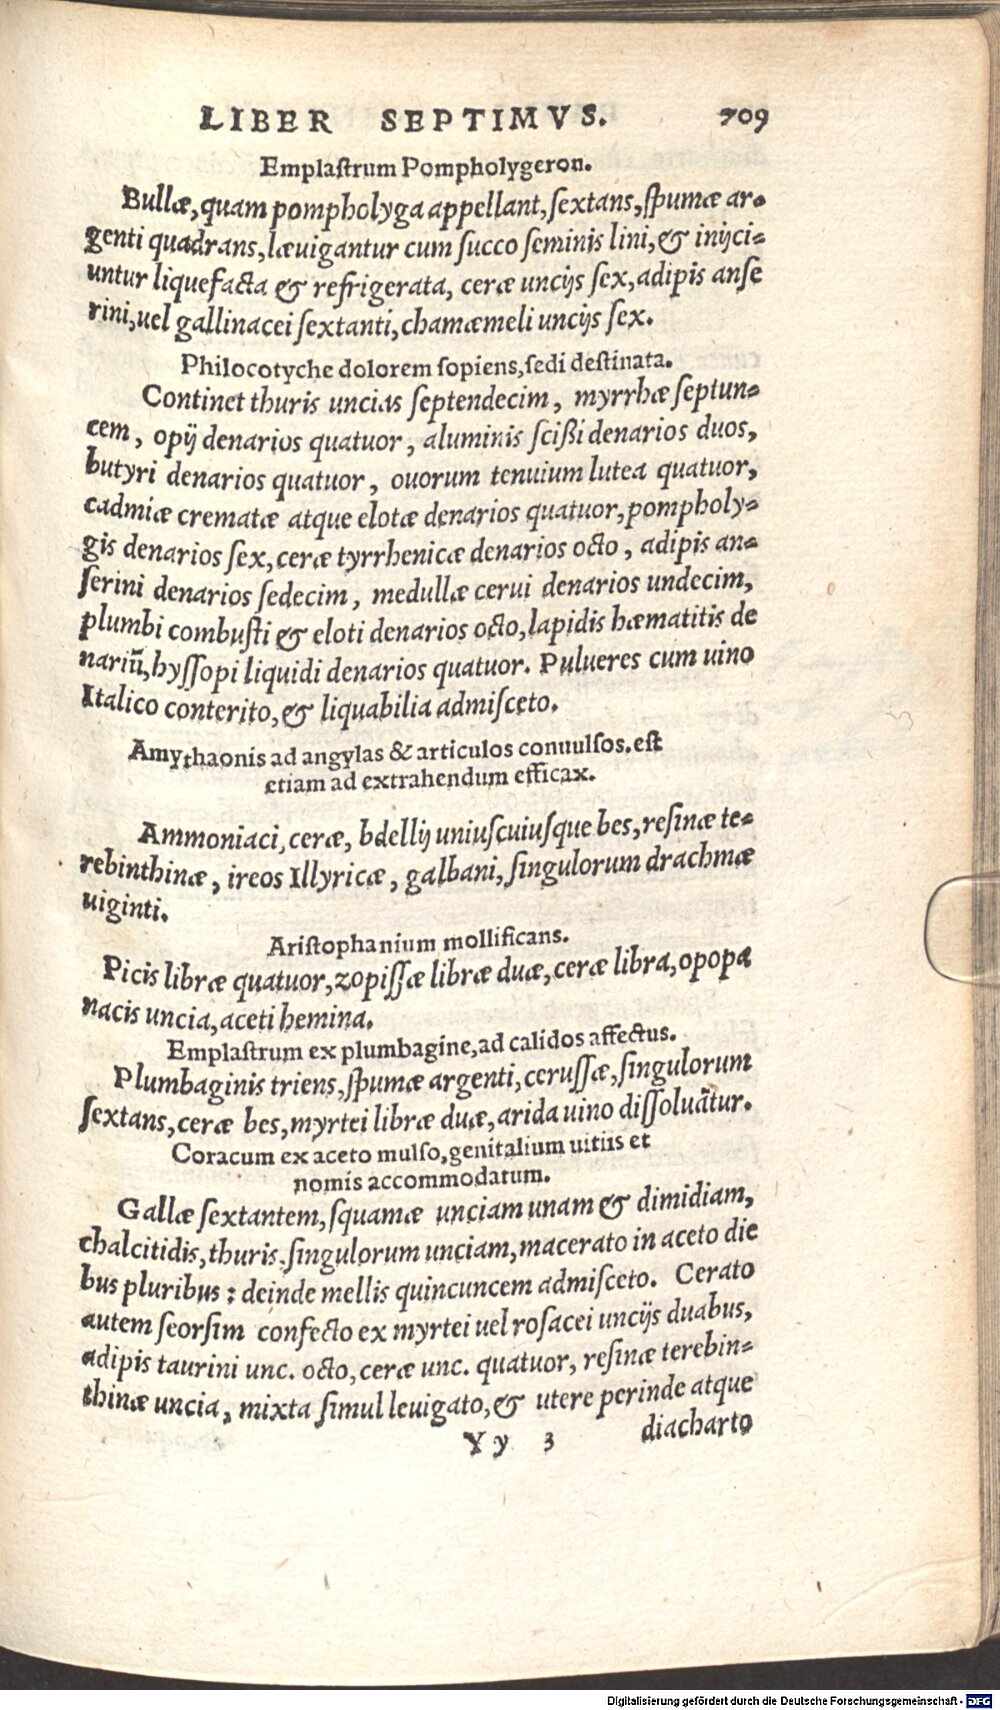 LIBER SEPTIMVS. 709
Emplaſtrum Pompholygeron.
Bullæ, quam pompholyga appellant, ſextans, ſpumæ ar-
genti quadrans, læuigantur cum ſucco ſeminis lini, & inijci-
untur liquefacta & refrigerata, ceræ uncijs ſex, adipis anſe
rini, uel gallinacei ſextanti, chamæmeli uncijs ſex.
Philocotyche dolorem ſopiens, ſedi deſtinata.
Continet thuris uncias ſeptendecim, myrrhæ ſeptun-
cem, opij denarios quatuor, aluminis ſcißi denarios duos,
butyri denarios quatuor, ouorum tenuium lutea quatuor,
cadmiæ crematæ atque elotæ denarios quatuor, pompholy-
gis denarios ſex, ceræ tyrrhenicæ denarios octo, adipis an-
ſerini denarios ſedecim, medullæ cerui denarios undecim,
plumbi combuſti & eloti denarios octo, lapidis hæmatitis de
nariũ, hyſſopi liquidi denarios quatuor. Pulueres cum uino
Italico conterito, & liquabilia admiſceto.
Amythaonis ad angylas & articulos conuulſos. eſt
etiam ad extrahendum efficax.
Ammoniaci, ceræ, bdellij uniuſcuiuſque bes, reſinæ te-
rebinthinæ, ireos Illyricæ, galbani, ſingulorum drachmæ
uiginti.
Ariſtophanium mollificans.
Picis libræ quatuor, zopiſſæ libræ duæ, ceræ libra, opopa
nacis uncia, aceti hemina.
Emplaſtrum ex plumbagine, ad calidos affectus.
Plumbaginis triens, ſpumæ argenti, ceruſſæ, ſingulorum
ſextans, ceræ bes, myrtei libræ duæ, arida uino diſſoluãtur.
Coracum ex aceto mulſo, genitalium uitiis et
nomis accommodatum.
Gallæ ſextantem, ſquamæ unciam unam & dimidiam,
chalcitidis, thuris, ſingulorum unciam, macerato in aceto die
bus pluribus: deinde mellis quincuncem admiſceto. Cerato
autem ſeorſim confecto ex myrtei uel roſacei uncijs duabus,
adipis taurini unc. octo, ceræ unc. quatuor, reſinæ terebin-
thinæ uncia, mixta ſimul leuigato, & utere perinde atque
Yy 3 diacharto
Digitalisierung gefördert durch die Deutsche Forschungsgemeinschaft - DFG